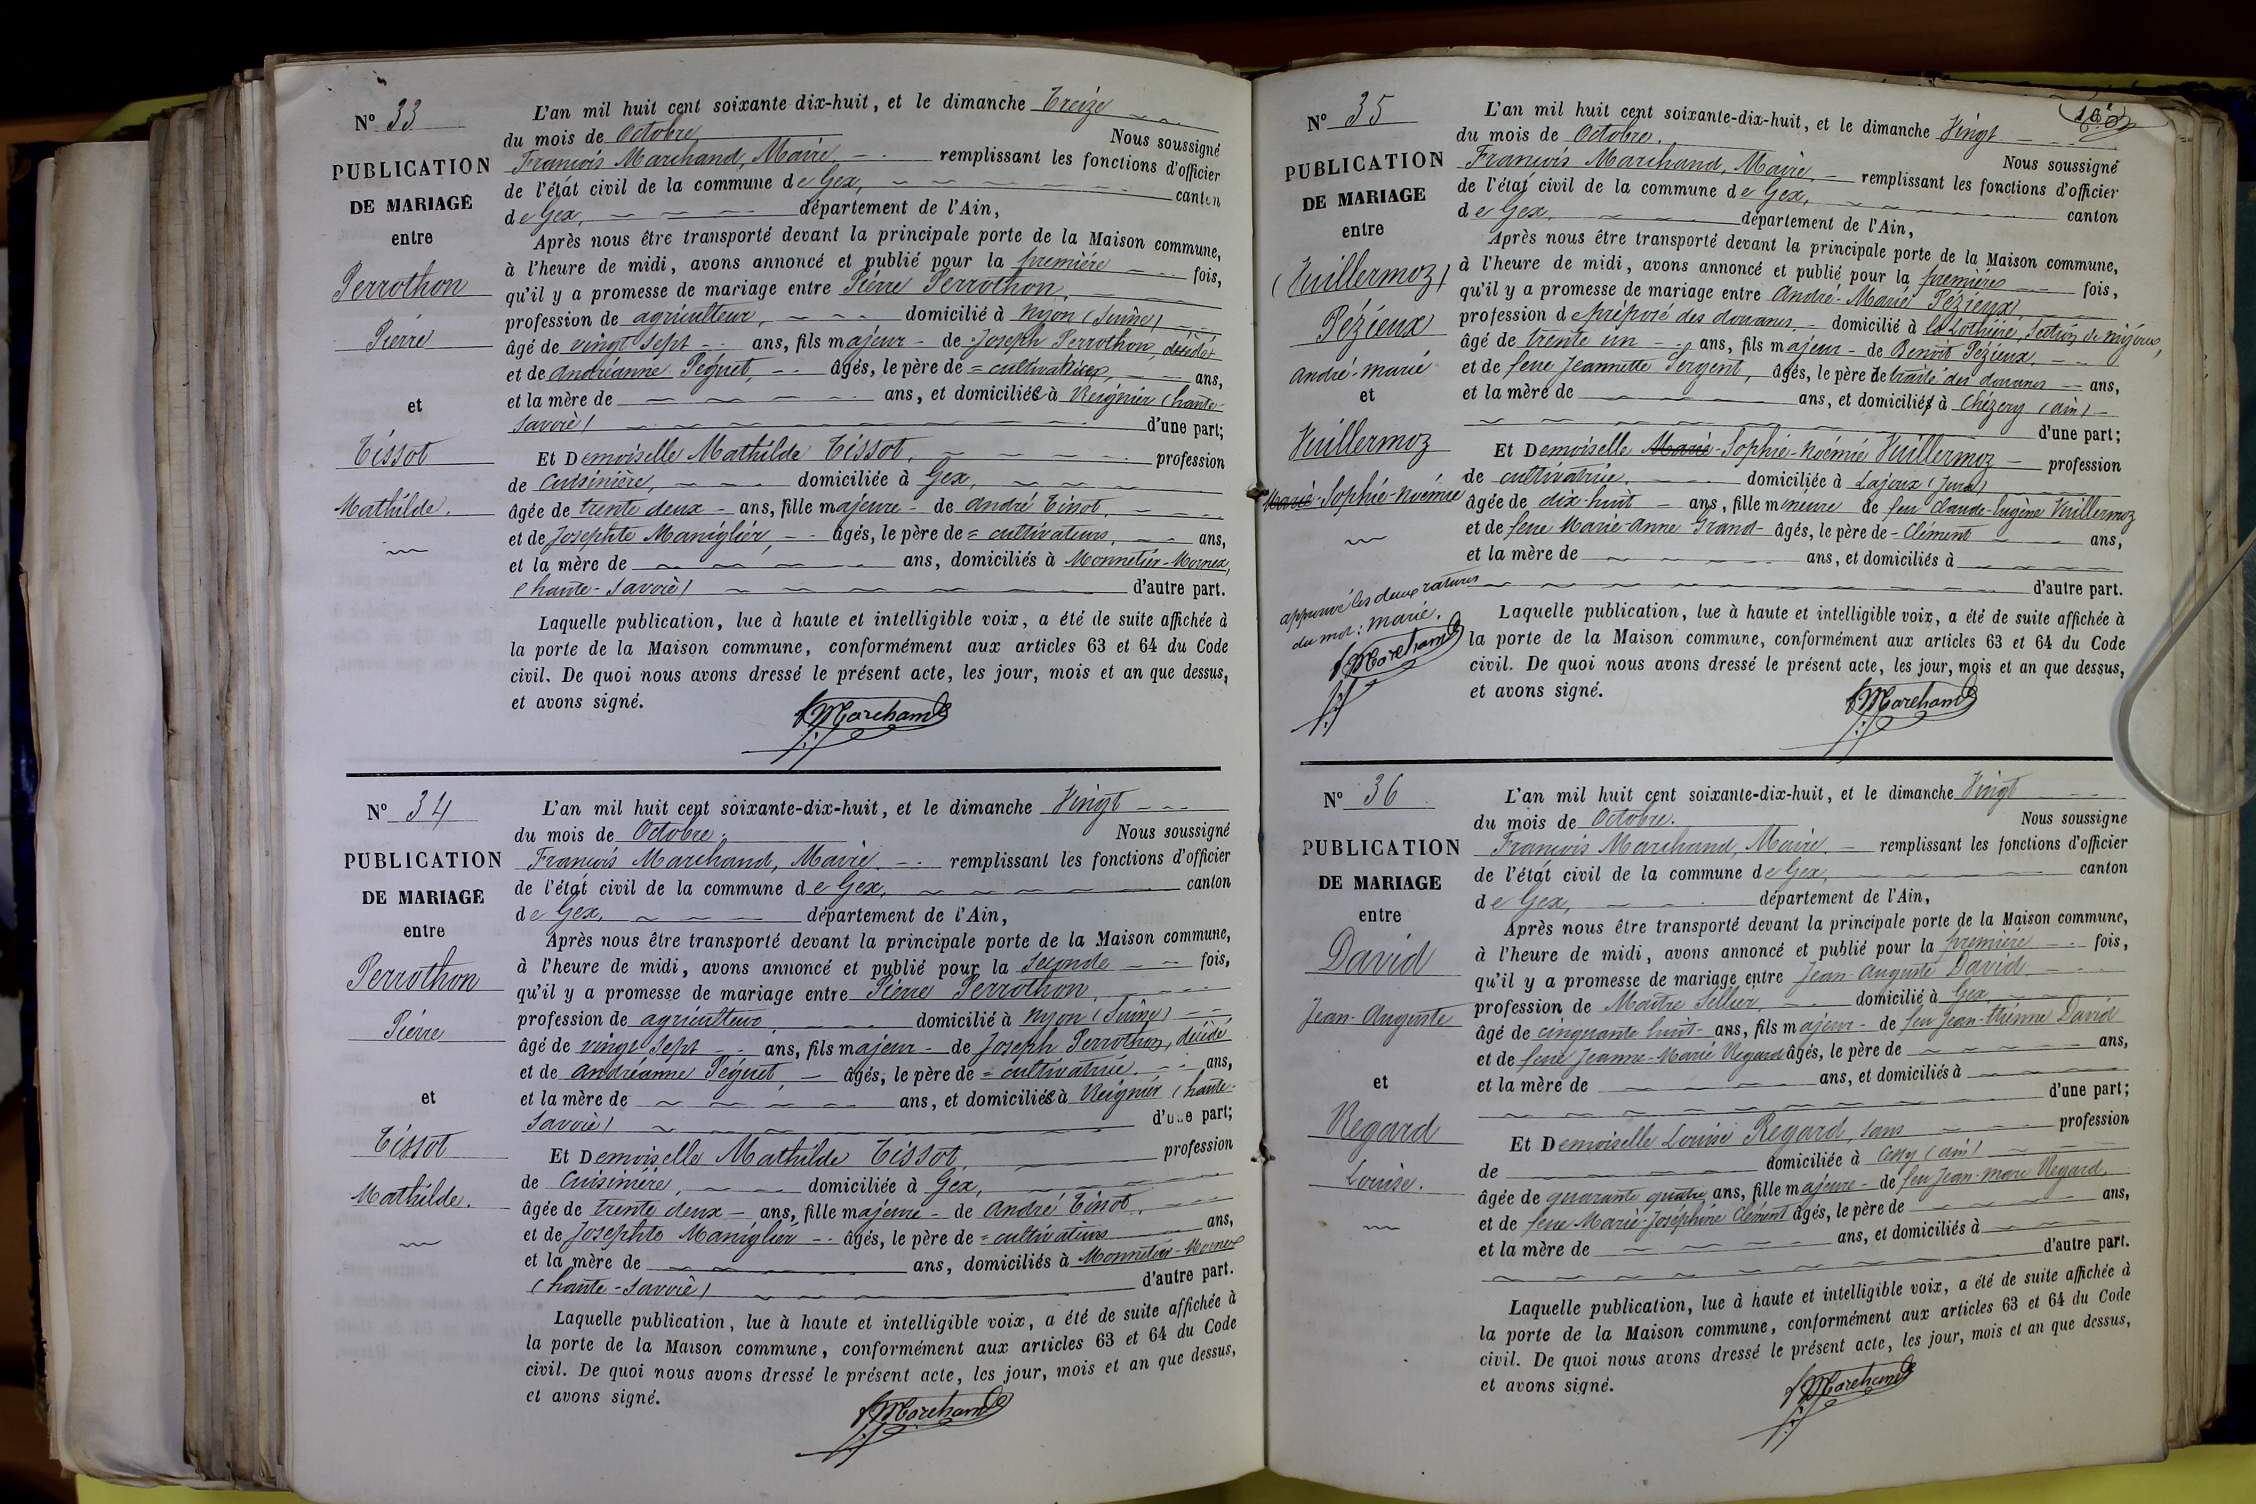 N° 33
PUBLICATION
DE MARIAGE
entre
Perrothon
Pierre
et
Tissot
Mathilde.
L'an mil huit cent soixante-dix-huit, et le dimanche Treize
du mois de Octobre Nous soussigné
François Marchand, Maire, remplissant les fonctions d'officier
de l'état civil de la commune de Gex, canton
de Gex, département de l'Ain,
Après nous être transporté devant la principale porte de la Maison commune,
à l'heure de midi, avons annoncé et publié pour la première fois,
qu'il y a promesse de mariage entre Pierre Perrothon,
profession de agriculteur, domicilié à Nyon (Suisse)
âgé de vingt sept ans, fils majeur de Joseph Perrothon, décédé
et de andréanne Péguet, âgés, le père de = cultivatrice, ans,
et la mère de ans, et domiciliés à Reignier (haute-
Savoie) d'une part;
Et Demoiselle Mathilde Tissot, profession
de Cuisinière, domiciliée à Gex,
âgée de trente deux ans, fille majeure de andré Tissot,
et de Josephte Maniglier, âgés, le père de = cultivateurs, ans,
et la mère de ans, domiciliés à Monnetier-Mornex,
(haute-Savoie) d'autre part.
Laquelle publication, lue à haute et intelligible voix, a été de suite affichée à
la porte de la Maison commune, conformément aux articles 63 et 64 du Code
civil. De quoi nous avons dressé le présent acte, les jour, mois et an que dessus,
et avons signé.
fMarchand
N° 34
PUBLICATION
DE MARIAGE
entre
Perrothon
Pierre
et
Tissot
Mathilde.
L'an mil huit cent soixante-dix-huit, et le dimanche Vingt
du mois de Octobre. Nous soussigné
François Marchand, Maire remplissant les fonctions d'officier
de l'état civil de la commune de Gex, canton
de Gex, département de l'Ain,
Après nous être transporté devant la principale porte de la Maison commune,
à l'heure de midi, avons annoncé et publié pour la seconde fois,
qu'il y a promesse de mariage entre Pierre Perrothon,
profession de agriculteur, domicilié à Nyon (Suisse)
âgé de vingt sept ans, fils majeur de Joseph Perrothon, décédé
et de andréanne Péguet, âgés, le père de = cultivatrice. ans,
et la mère de ans, et domiciliés à Reignier (haute-
Savoie) d'une part;
Et Demoiselle Mathilde Tissot, profession
de Cuisinière, domiciliée à Gex,
âgée de trente deux ans, fille majeure de andré Tissot,
et de Josephte Maniglier âgés, le père de = cultivateurs ans,
et la mère de ans, domiciliés à Monnetier-Mornex
(haute-Savoie) d'autre part.
Laquelle publication, lue à haute et intelligible voix, a été de suite affichée à
la porte de la Maison commune, conformément aux articles 63 et 64 du Code
civil. De quoi nous avons dressé le présent acte, les jour, mois et an que dessus,
et avons signé.
fMarchand
N° 35
PUBLICATION
DE MARIAGE
entre
(Vuillermoz)
Pézieux
andré-marie
et
Vuillermoz
Marie-Sophie-Noémie
approuvé les deux ratures
du mot: marie.
fMarchand
L'an mil huit cent soixante-dix-huit, et le dimanche Vingt
du mois de Octobre. Nous soussigné
François Marchand, Maire, remplissant les fonctions d'officier
de l'état civil de la commune de Gex, canton
de Gex, département de l'Ain,
Après nous être transporté devant la principale porte de la Maison commune,
à l'heure de midi, avons annoncé et publié pour la première fois,
qu'il y a promesse de mariage entre André-Marie Pézieux,
profession de préposé des douanes domicilié à section de mijoux,
âgé de trente un ans, fils majeur de Benoît Pézieux,
et de feue Jeannette Sergent, âgés, le père de traité des douanes ans,
et la mère de ans, et domiciliés à Chézery (ain)
d'une part;
Et Demoiselle Marie-Sophie-Noémie Vuillermoz profession
de cultivatrice, domiciliée à Lajoux (Jura)
âgée de dix-huit ans, fille mineure de feu Claude-Eugène Vuillermoz
et de feue Marie-anne Grand- âgés, le père de - Clément ans,
et la mère de ans, et domiciliés à
d'autre part.
Laquelle publication, lue à haute et intelligible voix, a été de suite affichée à
la porte de la Maison commune, conformément aux articles 63 et 64 du Code
civil. De quoi nous avons dressé le présent acte, les jour, mois et an que dessus,
et avons signé.
fMarchand
N° 36
PUBLICATION
DE MARIAGE
entre
David
Jean-Auguste
et
Regard
Louise.
L'an mil huit cent soixante-dix-huit, et le dimanche Vingt
du mois de Octobre. Nous soussigné
François Marchand, Maire, remplissant les fonctions d'officier
de l'état civil de la commune de Gex, canton
de Gex, département de l'Ain,
Après nous être transporté devant la principale porte de la Maison commune,
à l'heure de midi, avons annoncé et publié pour la première fois,
qu'il y a promesse de mariage entre Jean-Auguste David
profession de Maître Sellier domicilié à Gex
âgé de cinquante huit ans, fils majeur de feu Jean-thienne David
et de feue Jeanne-Marie Regard âgés, le père de ans,
et la mère de ans, et domiciliés à
d'une part;
Et Demoiselle Louise Regard, sans profession
de domiciliée à Cessy (ain)
âgée de quarante quatre ans, fille majeure de feu Jean-marc Regard,
et de feue Marie-Joséphine Clément âgés, le père de ans,
et la mère de ans, et domiciliés à
d'autre part.
Laquelle publication, lue à haute et intelligible voix, a été de suite affichée à
la porte de la Maison commune, conformément aux articles 63 et 64 du Code
civil. De quoi nous avons dressé le présent acte, les jour, mois et an que dessus,
et avons signé.
fMarchand